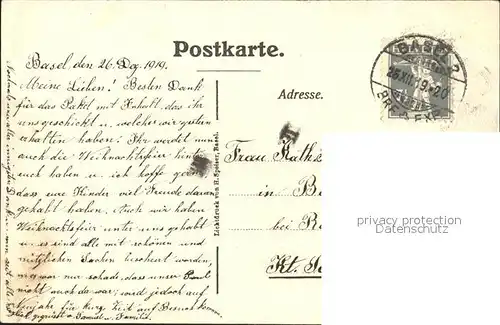 Postkarte.
Basel, den 26. Dez. 1919.
Meine Lieben! Besten Dank
für das Paket mit Inhalt, das ihr
uns geschickt u. welches wir gestern
erhalten haben. Ihr werdet nun
auch die Weihnachtsfeier hinter
euch haben u. ich hoffe gern
dass eure Kinder viel Freude daran
gehabt haben. Auch wir haben
Weihnachtsfeier unter uns gehabt
u. es sind alle mit schönen und
nützlichen Sachen beschert worden,
war nur schade, dass unser Paul
nicht auch da war; wird jedoch auf
Neujahr für kurze Zeit auf Besuch kommen.
gegrüsst v. Samuel u. Familie.
Lichtdruck von H. Speiser, Basel.
BASEL 2
26.XII.19.-20
BR. EXP.
Adresse.
Frau Kath
in B
bei R
Kt.
privacy protection
watermark